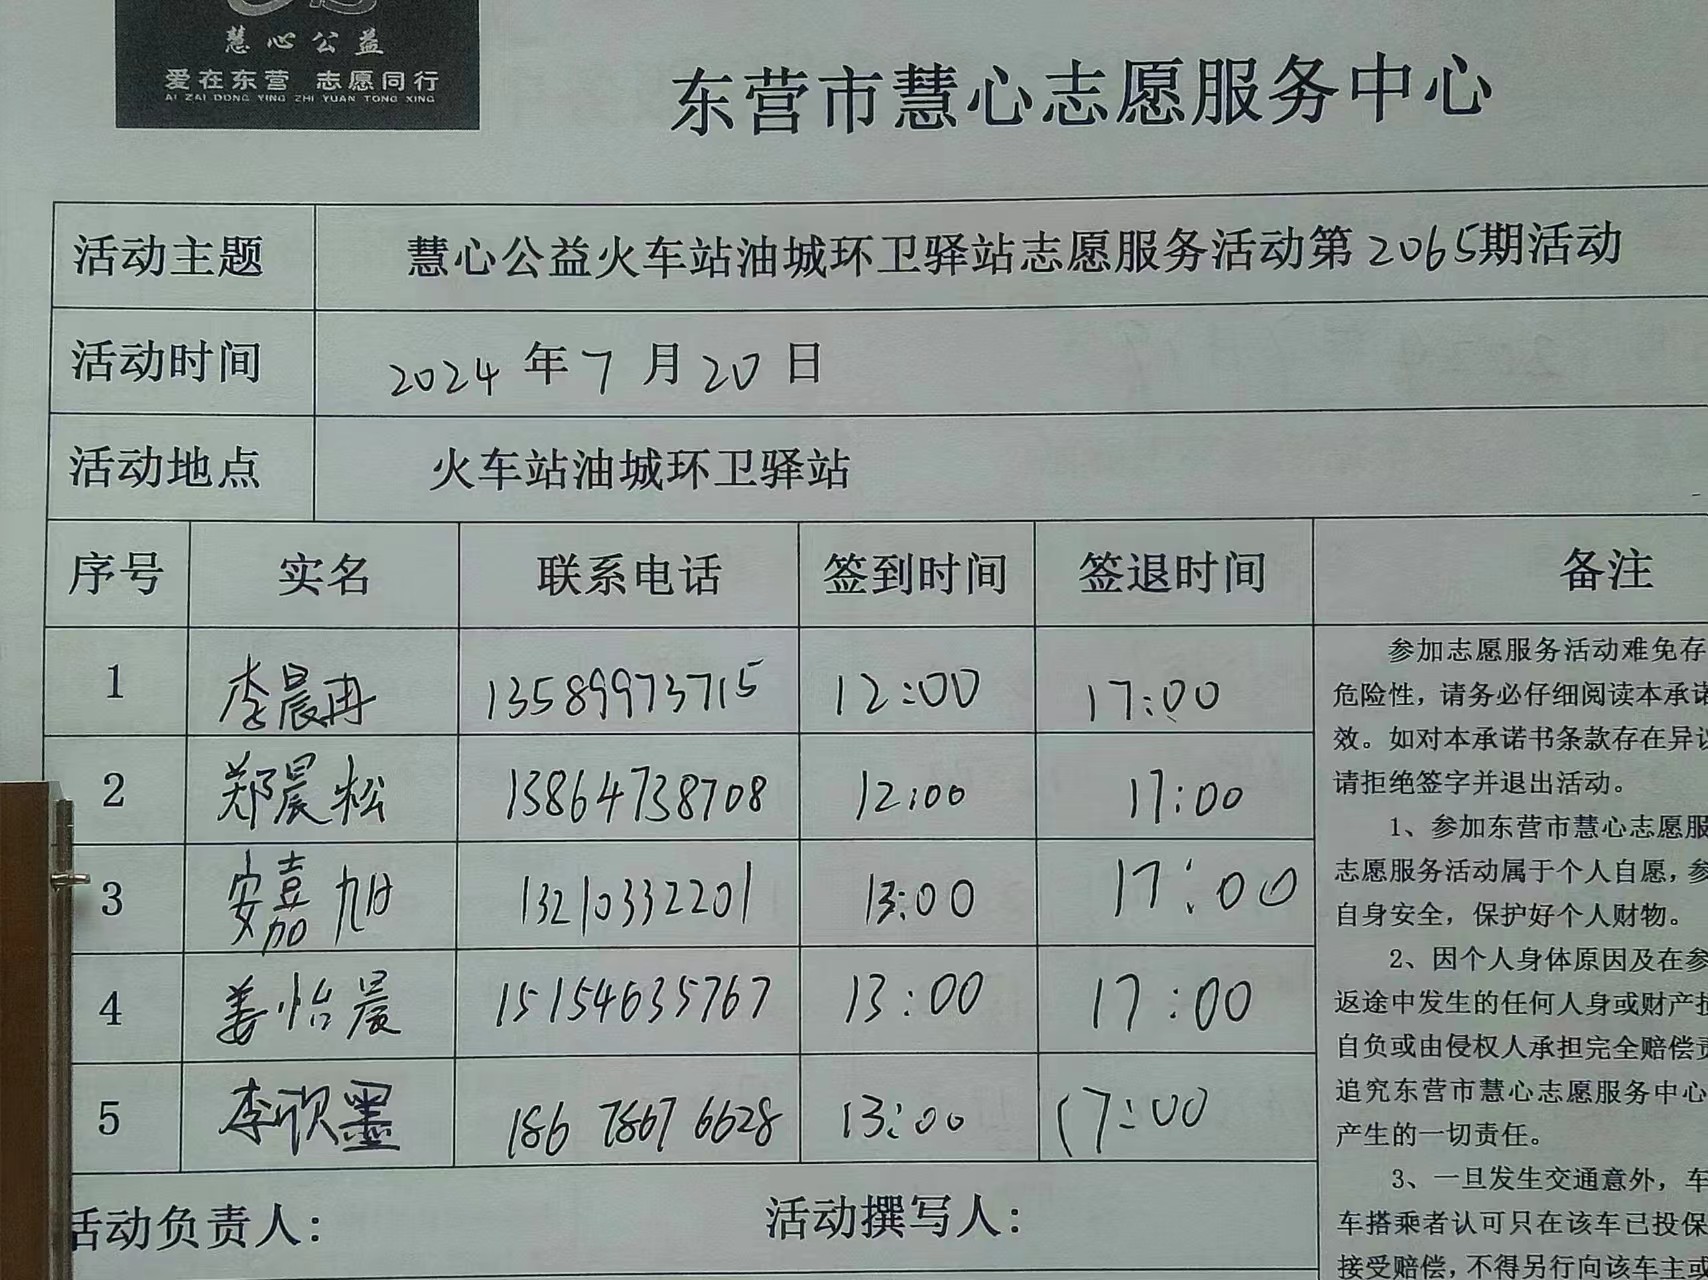 慧心公益
爱在东营 志愿同行
AI ZAI DONG YING ZHI YUAN TONG XING
东营市慧心志愿服务中心
活动主题 慧心公益火车站油城环卫驿站志愿服务活动第2065期活动
活动时间 2024年7月20日
活动地点 火车站油城环卫驿站
序号 实名 联系电话 签到时间 签退时间 备注
1 李晨冉 13589973715 12:00 17:00
2 郑晨松 13864738708 12:00 17:00
3 安嘉旭 13210332201 13:00 17:00
4 姜怡晨 15154635767 13:00 17:00
5 李欣墨 186 7867 6628 13:00 17:00
参加志愿服务活动难免存
危险性，请务必仔细阅读本承诺
效。如对本承诺书条款存在异议
请拒绝签字并退出活动。
1、参加东营市慧心志愿服
志愿服务活动属于个人自愿，参
自身安全，保护好个人财物。
2、因个人身体原因及在参
返途中发生的任何人身或财产损
自负或由侵权人承担完全赔偿责
追究东营市慧心志愿服务中心
产生的一切责任。
3、一旦发生交通意外，车
车搭乘者认可只在该车已投保
接受赔偿，不得另行向该车主或
活动负责人： 活动撰写人：